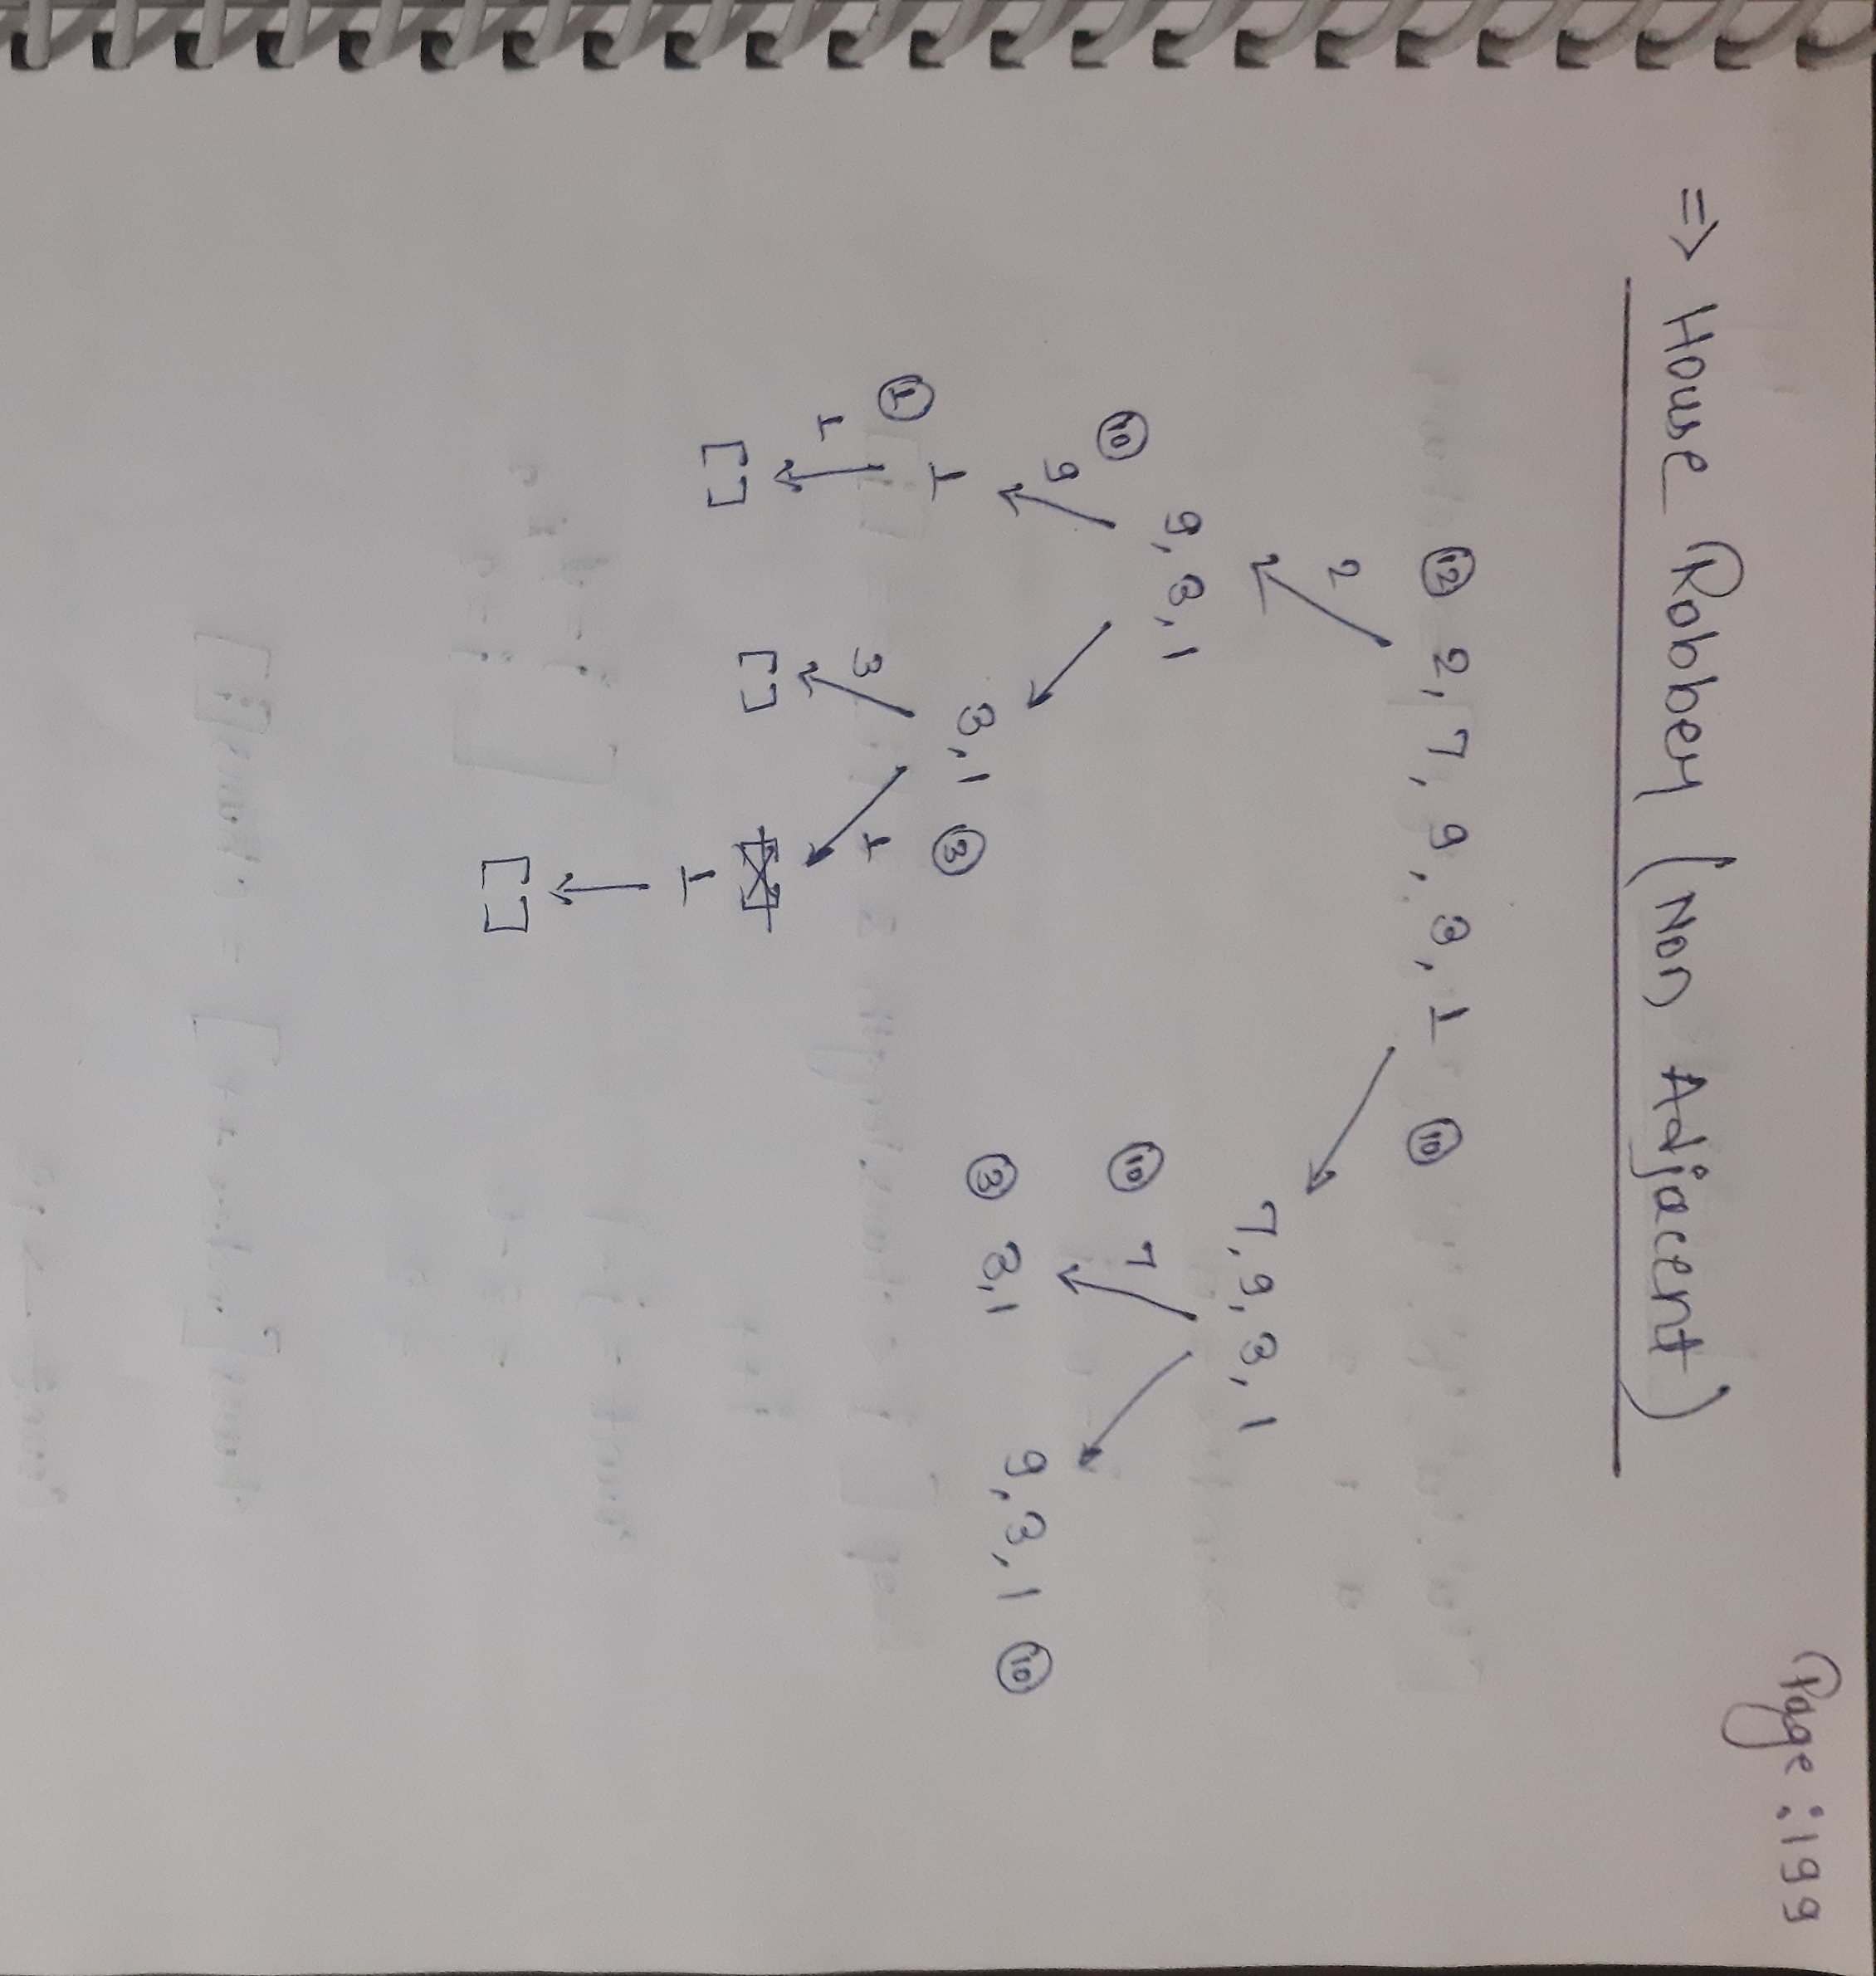 Page : 199
=> House Robbery (Non Adjacent)
12 2, 7, 9, 3, 1 10
2
7, 9, 3, 1
9, 3, 1
10 10 7
9
9, 3, 1 10
3 3, 1
3, 1 3
1
1
3 1
1
[ ] [ ]
1
[ ]